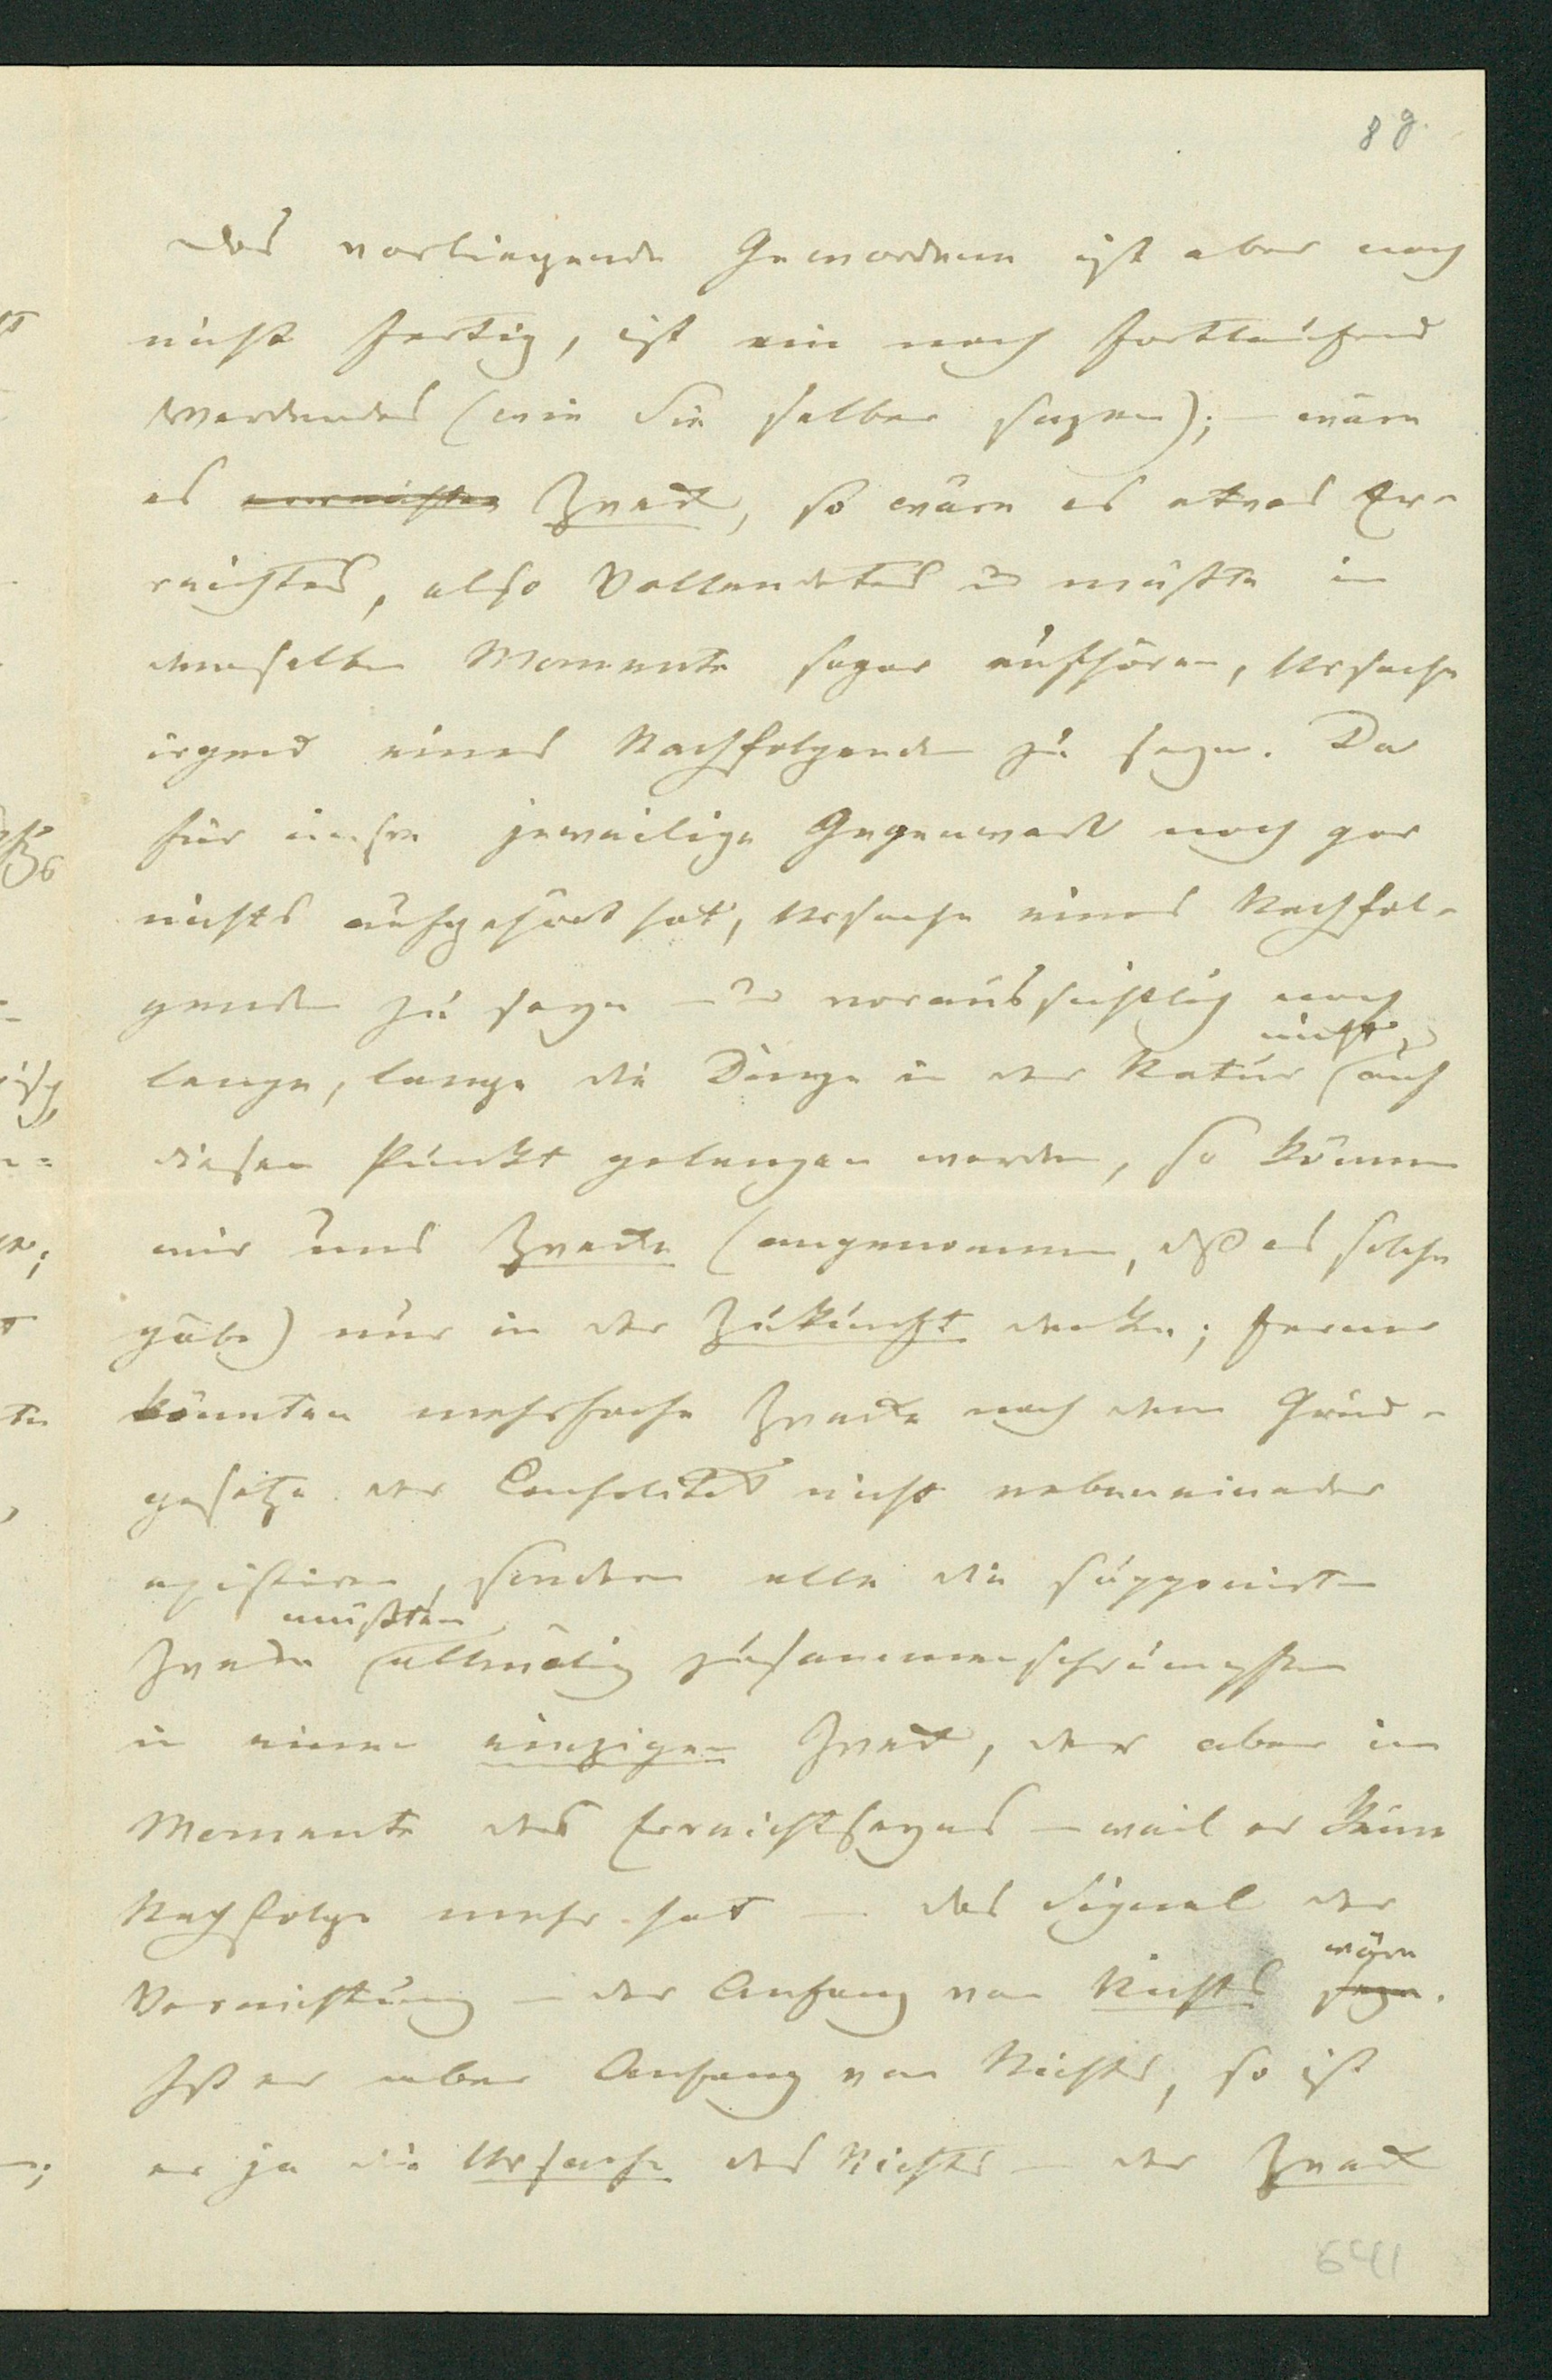 89.
das vorliegende Gewordene ist aber noch
nicht fertig, ist ein noch fortlaufend
Werdendes (wie Sie selber sagen); – wäre
es erreichter Zweck, so wäre es etwas Er-
reichtes, also Vollendetes u müßte in
demselben Momente sogar aufhören, Ursache
irgend eines Nachfolgenden zu seyn. Da
für unsre jeweilige Gegenwart noch gar
nichts aufgehört hat, Ursache eines Nachfol-
genden zu seyn – u voraussichtlich noch
lange, lange die Dinge in der Natur nicht auf
diesen Punkt gelangen werden, so können
wir uns Zwecke (angenommen, daß es solche
gäbe) nur in der Zukunft denken; ferner
könnten mehrfache Zwecke nach dem Grund-
gesetze der Causalität nicht nebeneinander
existiren, sondern alle die supponirten
Zwecke müßten allmälig zusammenschrumpfen
in einen einzigen Zweck, der aber im
Momente des Erreichtseyns – weil er keine
Nachfolge mehr hat – das Signal der
Vernichtung – der Anfang von Nichts seyn wäre.
Ist er aber Anfang von Nichts, so ist
er ja die Ursache des Nichts – der Zweck
641